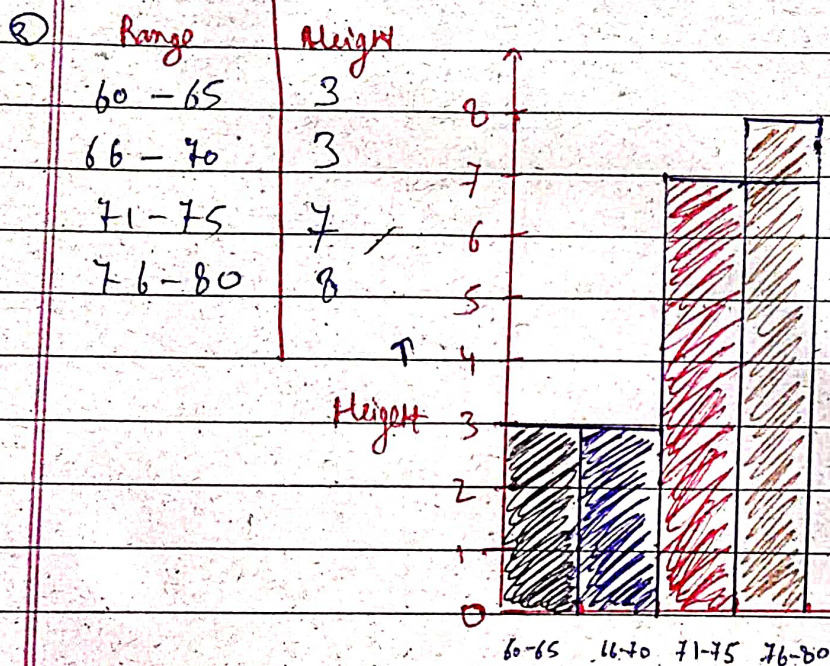 2 Range Height
60 - 65 3
66 - 70 3
71 - 75 7
76 - 80 8
8
7
6
5
↑ 4
Height 3
2
1
0
60-65 66-70 71-75 76-80